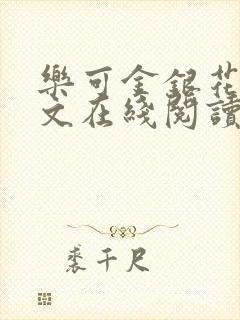 樂可金銀花
文在綫閱讀
裘千尺